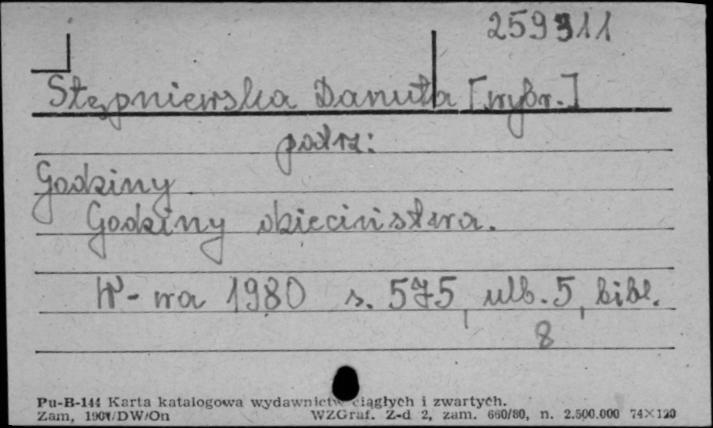 259911
Stępniewska Danuta [wybr.]
patrz:
Godziny
Godziny dzieciństwa.
W-wa 1980 s. 575, ulb. 5, bibl.
8
Pu-B-144 Karta katalogowa wydawnictw ciągłych i zwartych.
Zam, 1901/DW/On WZGraf. Z-d 2, zam. 660/80, n. 2.500.000 74×120